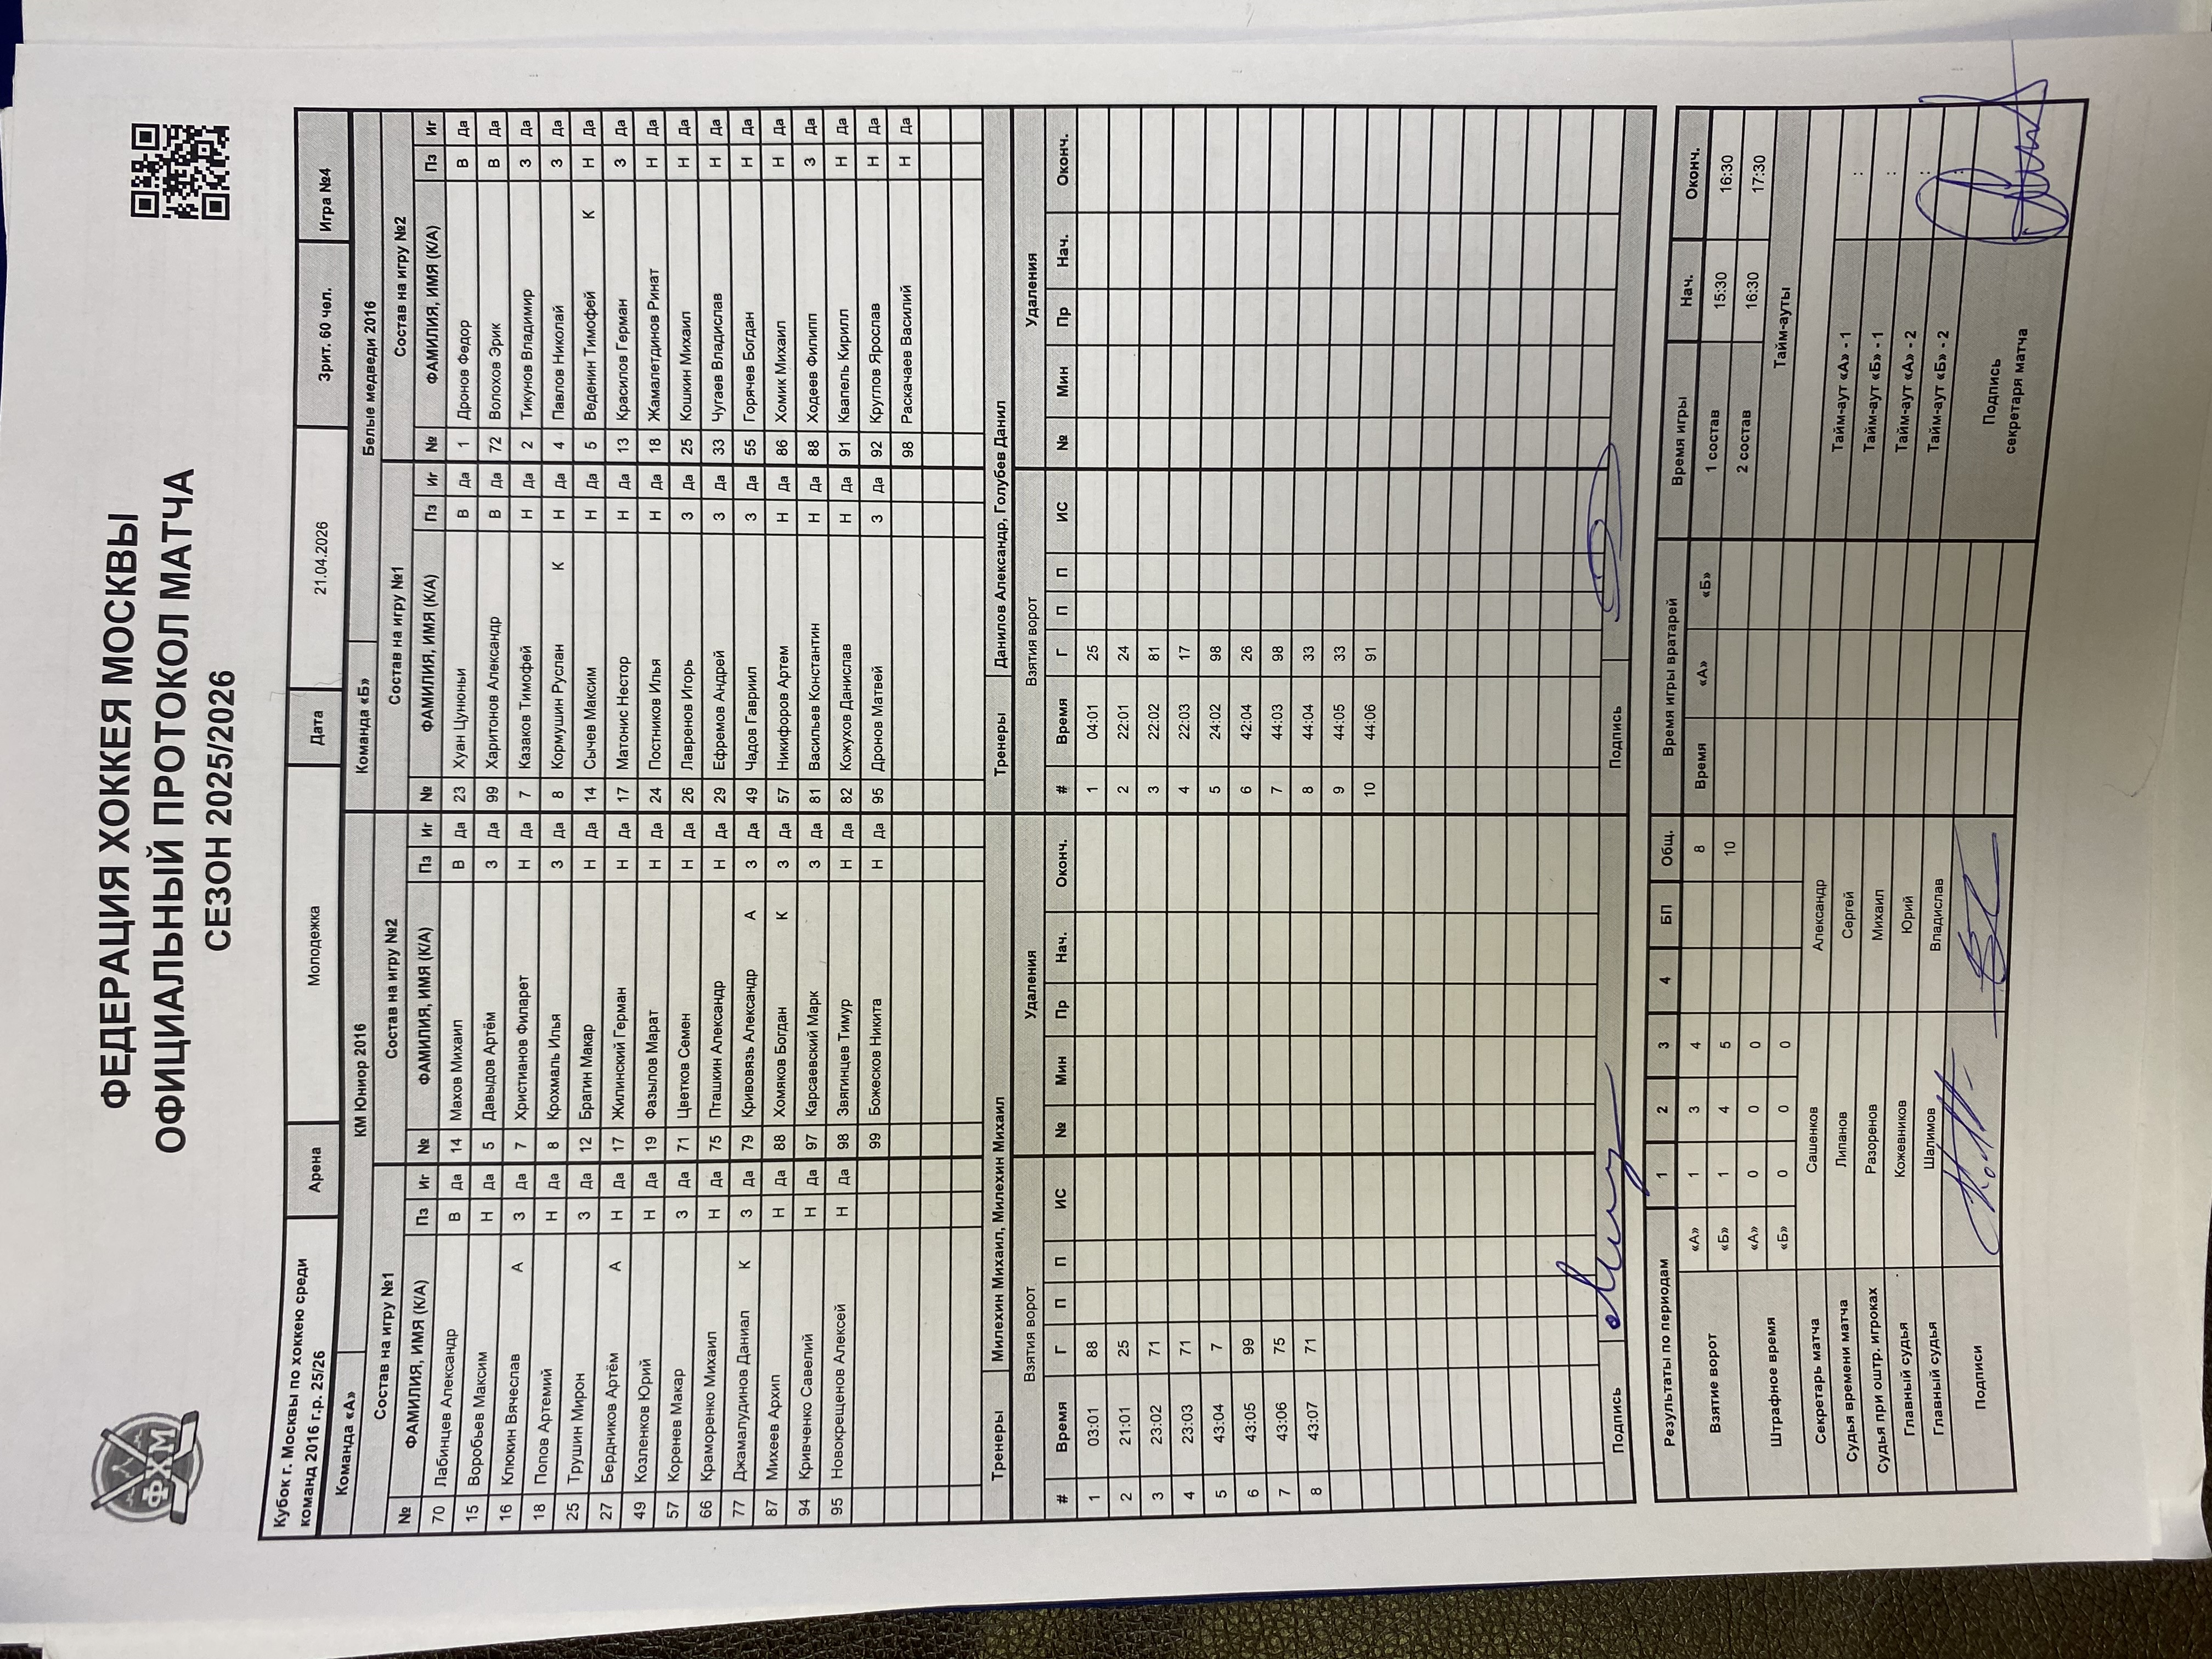 ФХМ
ФЕДЕРАЦИЯ ХОККЕЯ МОСКВЫ
ОФИЦИАЛЬНЫЙ ПРОТОКОЛ МАТЧА
СЕЗОН 2025/2026
Кубок г. Москвы по хоккею среди команд 2016 г.р. 25/26 Арена Молодежка Дата 21.04.2026 Зрит. 60 чел. Игра №4
Команда «А» КМ Юниор 2016 Команда «Б» Белые медведи 2016
Состав на игру №1 Состав на игру №2 Состав на игру №1 Состав на игру №2
№ ФАМИЛИЯ, ИМЯ (К/А) Пз Иг № ФАМИЛИЯ, ИМЯ (К/А) Пз Иг № ФАМИЛИЯ, ИМЯ (К/А) Пз Иг № ФАМИЛИЯ, ИМЯ (К/А) Пз Иг
70 Лабинцев Александр В Да 14 Махов Михаил В Да 23 Хуан Цуноньи В Да 1 Дронов Федор В Да
15 Воробьев Максим Н Да 5 Давыдов Артём З Да 99 Харитонов Александр В Да 72 Волохов Эрик В Да
16 Клюкин Вячеслав А З Да 7 Христианов Филарет Н Да 7 Казаков Тимофей Н Да 2 Тикунов Владимир З Да
18 Попов Артемий Н Да 8 Крохмаль Илья З Да 8 Кормушин Руслан К Н Да 4 Павлов Николай З Да
25 Трушин Мирон З Да 12 Брагин Макар Н Да 14 Сычев Максим Н Да 5 Веденин Тимофей К Н Да
27 Бердников Артём А Н Да 17 Жилинский Герман Н Да 17 Матонис Нестор Н Да 13 Красилов Герман З Да
49 Козленков Юрий Н Да 19 Фазылов Марат Н Да 24 Постников Илья Н Да 18 Жамалетдинов Ринат Н Да
57 Коренев Макар З Да 71 Цветков Семен Н Да 26 Лавренов Игорь З Да 25 Кошкин Михаил Н Да
66 Краморенко Михаил Н Да 75 Пташкин Александр Н Да 29 Ефремов Андрей З Да 33 Чугаев Владислав Н Да
77 Джамалудинов Даниал К З Да 79 Кривовязь Александр А З Да 49 Чадов Гавриил З Да 55 Горячев Богдан Н Да
87 Михеев Архип Н Да 88 Хомяков Богдан К З Да 57 Никифоров Артем Н Да 86 Хомик Михаил Н Да
94 Кривченко Савелий Н Да 97 Карсаевский Марк З Да 81 Васильев Константин Н Да 88 Ходеев Филипп З Да
95 Новокрещенов Алексей Н Да 98 Звягинцев Тимур Н Да 82 Кожухов Данислав Н Да 91 Квапель Кирилл Н Да
99 Божесков Никита Н Да 95 Дронов Матвей З Да 92 Круглов Ярослав Н Да
98 Раскачаев Василий Н Да
Тренеры Милехин Михаил, Милехин Михаил Тренеры Данилов Александр, Голубев Данил
Взятия ворот Удаления Взятия ворот Удаления
# Время Г П П ИС № Мин Пр Нач. Оконч. # Время Г П П ИС № Мин Пр Нач. Оконч.
1 03:01 88 1 04:01 25
2 21:01 25 2 22:01 24
3 23:02 71 3 22:02 81
4 23:03 71 4 22:03 17
5 43:04 7 5 24:02 98
6 43:05 99 6 42:04 26
7 43:06 75 7 44:03 98
8 43:07 71 8 44:04 33
9 44:05 33
10 44:06 91
Подпись Подпись
Результаты по периодам 1 2 3 4 БП Общ. Время игры вратарей Время игры Нач. Оконч.
Взятие ворот «А» 1 3 4 8 Время «А» «Б» 1 состав 15:30 16:30
«Б» 1 4 5 10 2 состав 16:30 17:30
Штрафное время «А» 0 0 0 Тайм-ауты
«Б» 0 0 0
Секретарь матча Сашенков Александр Тайм-аут «А» - 1 :
Судья времени матча Липанов Сергей Тайм-аут «Б» - 1 :
Судья при оштр. игроках Разоренов Михаил Тайм-аут «А» - 2 :
Главный судья Кожевников Юрий Тайм-аут «Б» - 2 :
Главный судья Шалимов Владислав
Подписи Подпись секретаря матча